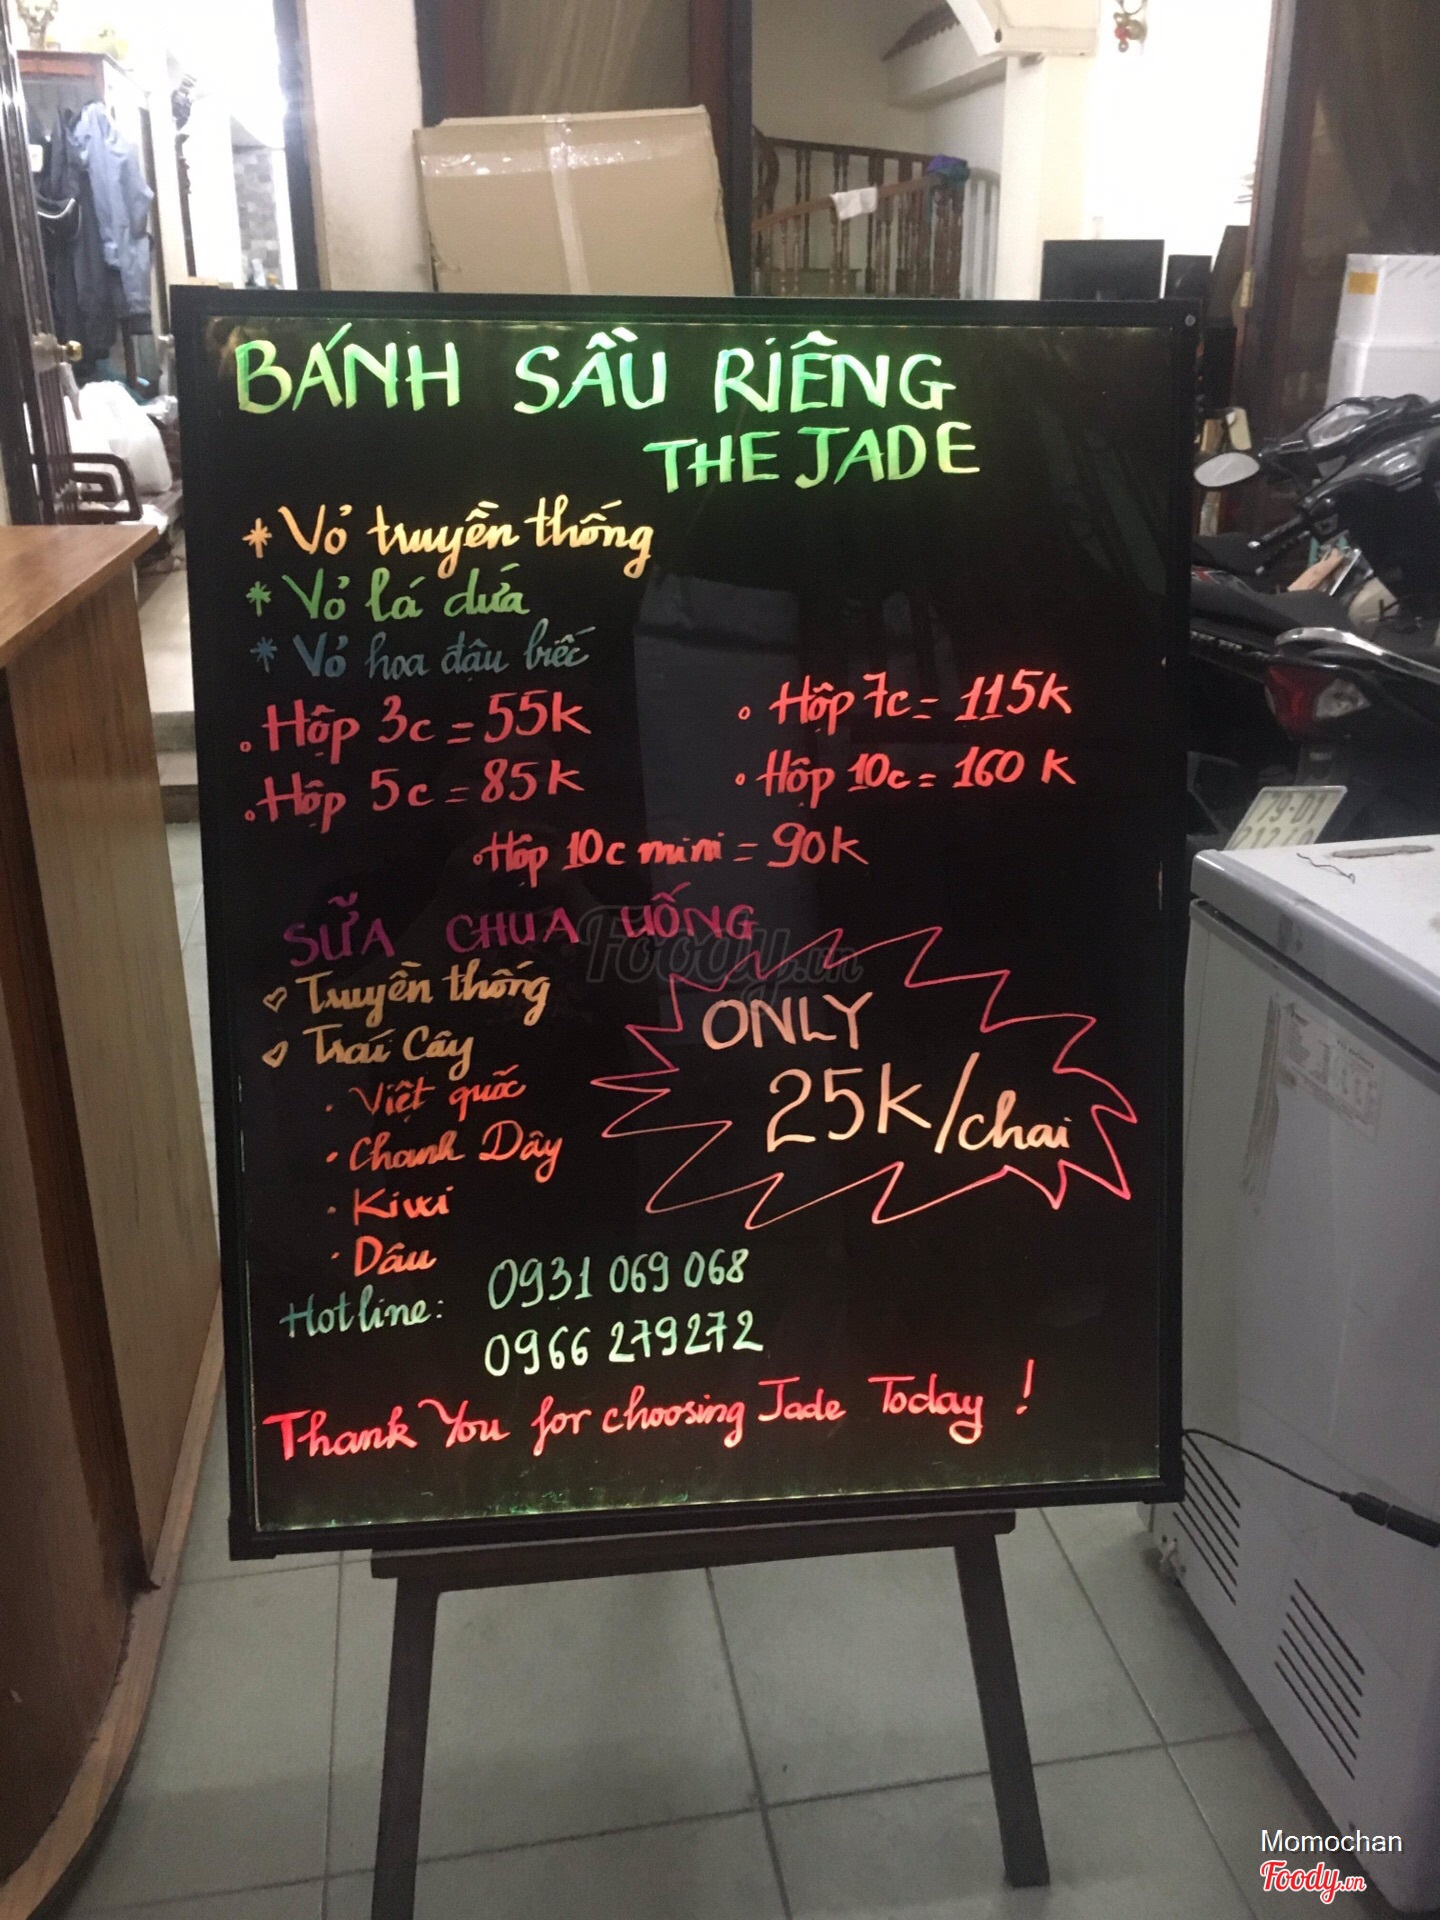 BÁNH SẦU RIÊNG
THE JADE
* Vỏ truyền thống
* Vỏ lá dứa
* Vỏ hoa đậu biếc
Hộp 3c = 55k
Hộp 7c = 115k
Hộp 5c = 85k
Hộp 10c = 160k
Hộp 10c mini = 90k
SỮA CHUA UỐNG
Truyền thống
Trái Cây
ONLY
25k/chai
· Việt quốc
· Chanh Dây
· Kiwi
· Dâu
Hotline: 0931 069 068
0966 279272
Thank You for choosing Jade Today !
Foody.vn
79-D1
Momochan
Foody.vn